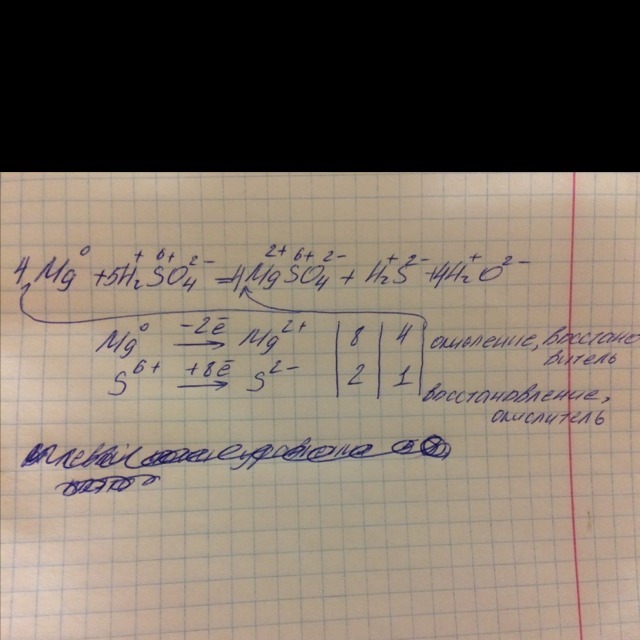 4Mg⁰ + 5H₂⁺S⁶⁺O₄²⁻ = 4Mg²⁺S⁶⁺O₄²⁻ + H₂⁺S²⁻ + 4H₂⁺O²⁻
Mg⁰ −2ē → Mg²⁺ | 8 | 4 | окисление, восстано
витель
S⁶⁺ +8ē → S²⁻ | 2 | 1 |
восстановление,
окислитель